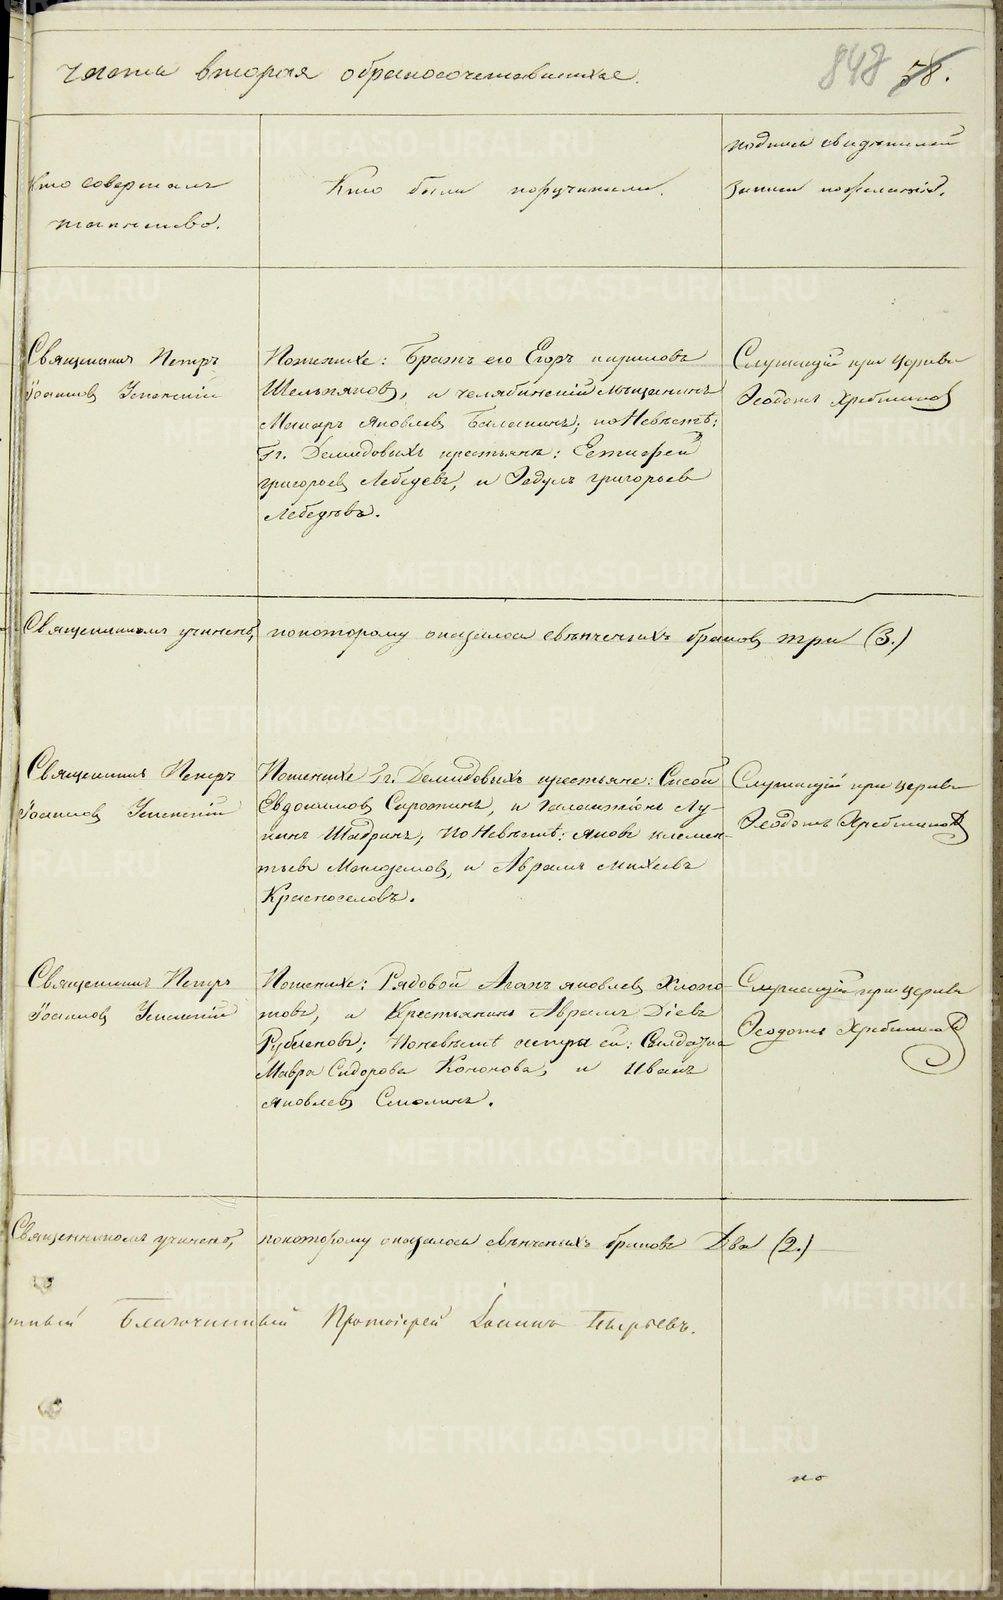 часть вторая о бракосочетавшихся.
848 38.
Кто совершалъ
таинство.
Кто были поручители.
подпись свидѣтелей
записи по желанію.
Священникъ Петръ
Іоанновъ Успенскій
По женихѣ: Братъ его Егоръ Кириловъ
и челябинскій мѣщанинъ
Макаръ Яковлевъ Балакинъ; по Невѣстѣ:
Гг. Демидовыхъ крестьяне:
Григорьевъ Лебедевъ, и Федулъ Григорьевъ
Лебедевъ.
Служащій при церкви
Ѳеодотъ Хребтиковъ
Священникомъ учиненъ, по которому оказалось свѣнченыхъ браковъ три (3.)
Священникъ Петръ
Іоанновъ Успенскій
По женихѣ Гг. Демидовыхъ крестьяне: Сысой
Евдокимовъ Сиротинъ, и Галактіонъ Лу-
кинъ Шадринъ, По Невѣстѣ: Яковъ Клемен-
тьевъ и Аврамъ Михеевъ
Красноселовъ.
Служащій при церкви
Ѳеодотъ Хребтиковъ
Священникъ Петръ
Іоанновъ Успенскій
По женихѣ: Рядовой Агапъ Яковлевъ Хлопо-
товъ, и Крестьянинъ Аврамъ Діевъ
Рубленовъ; По невѣстѣ сестра ей: Солдатка
Мавра Сидорова Кононова, и Иванъ
Яковлевъ Смолинъ.
Служащій при церкви
Ѳеодотъ Хребтиковъ
Священникомъ учиненъ, по которому оказалось свѣнченыхъ браковъ Два (2.)
тный Благочинный Протоіерей Іоаннъ Пырьевъ.
по
METRIKI.GASO-URAL.RU